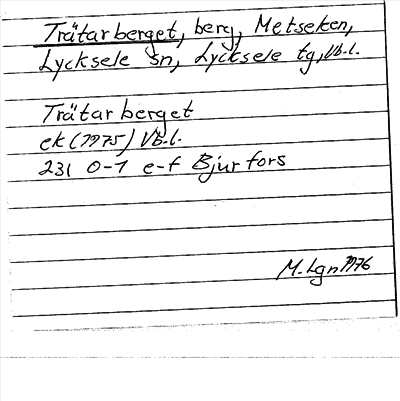 Trätarberget, berg, Metseken,
Lycksele sn, Lycksele tg, Vb.l.
Trätarberget
ek (1975) Vb.l.
23I 0-1 e-f Bjurfors
M. Lgn 1976